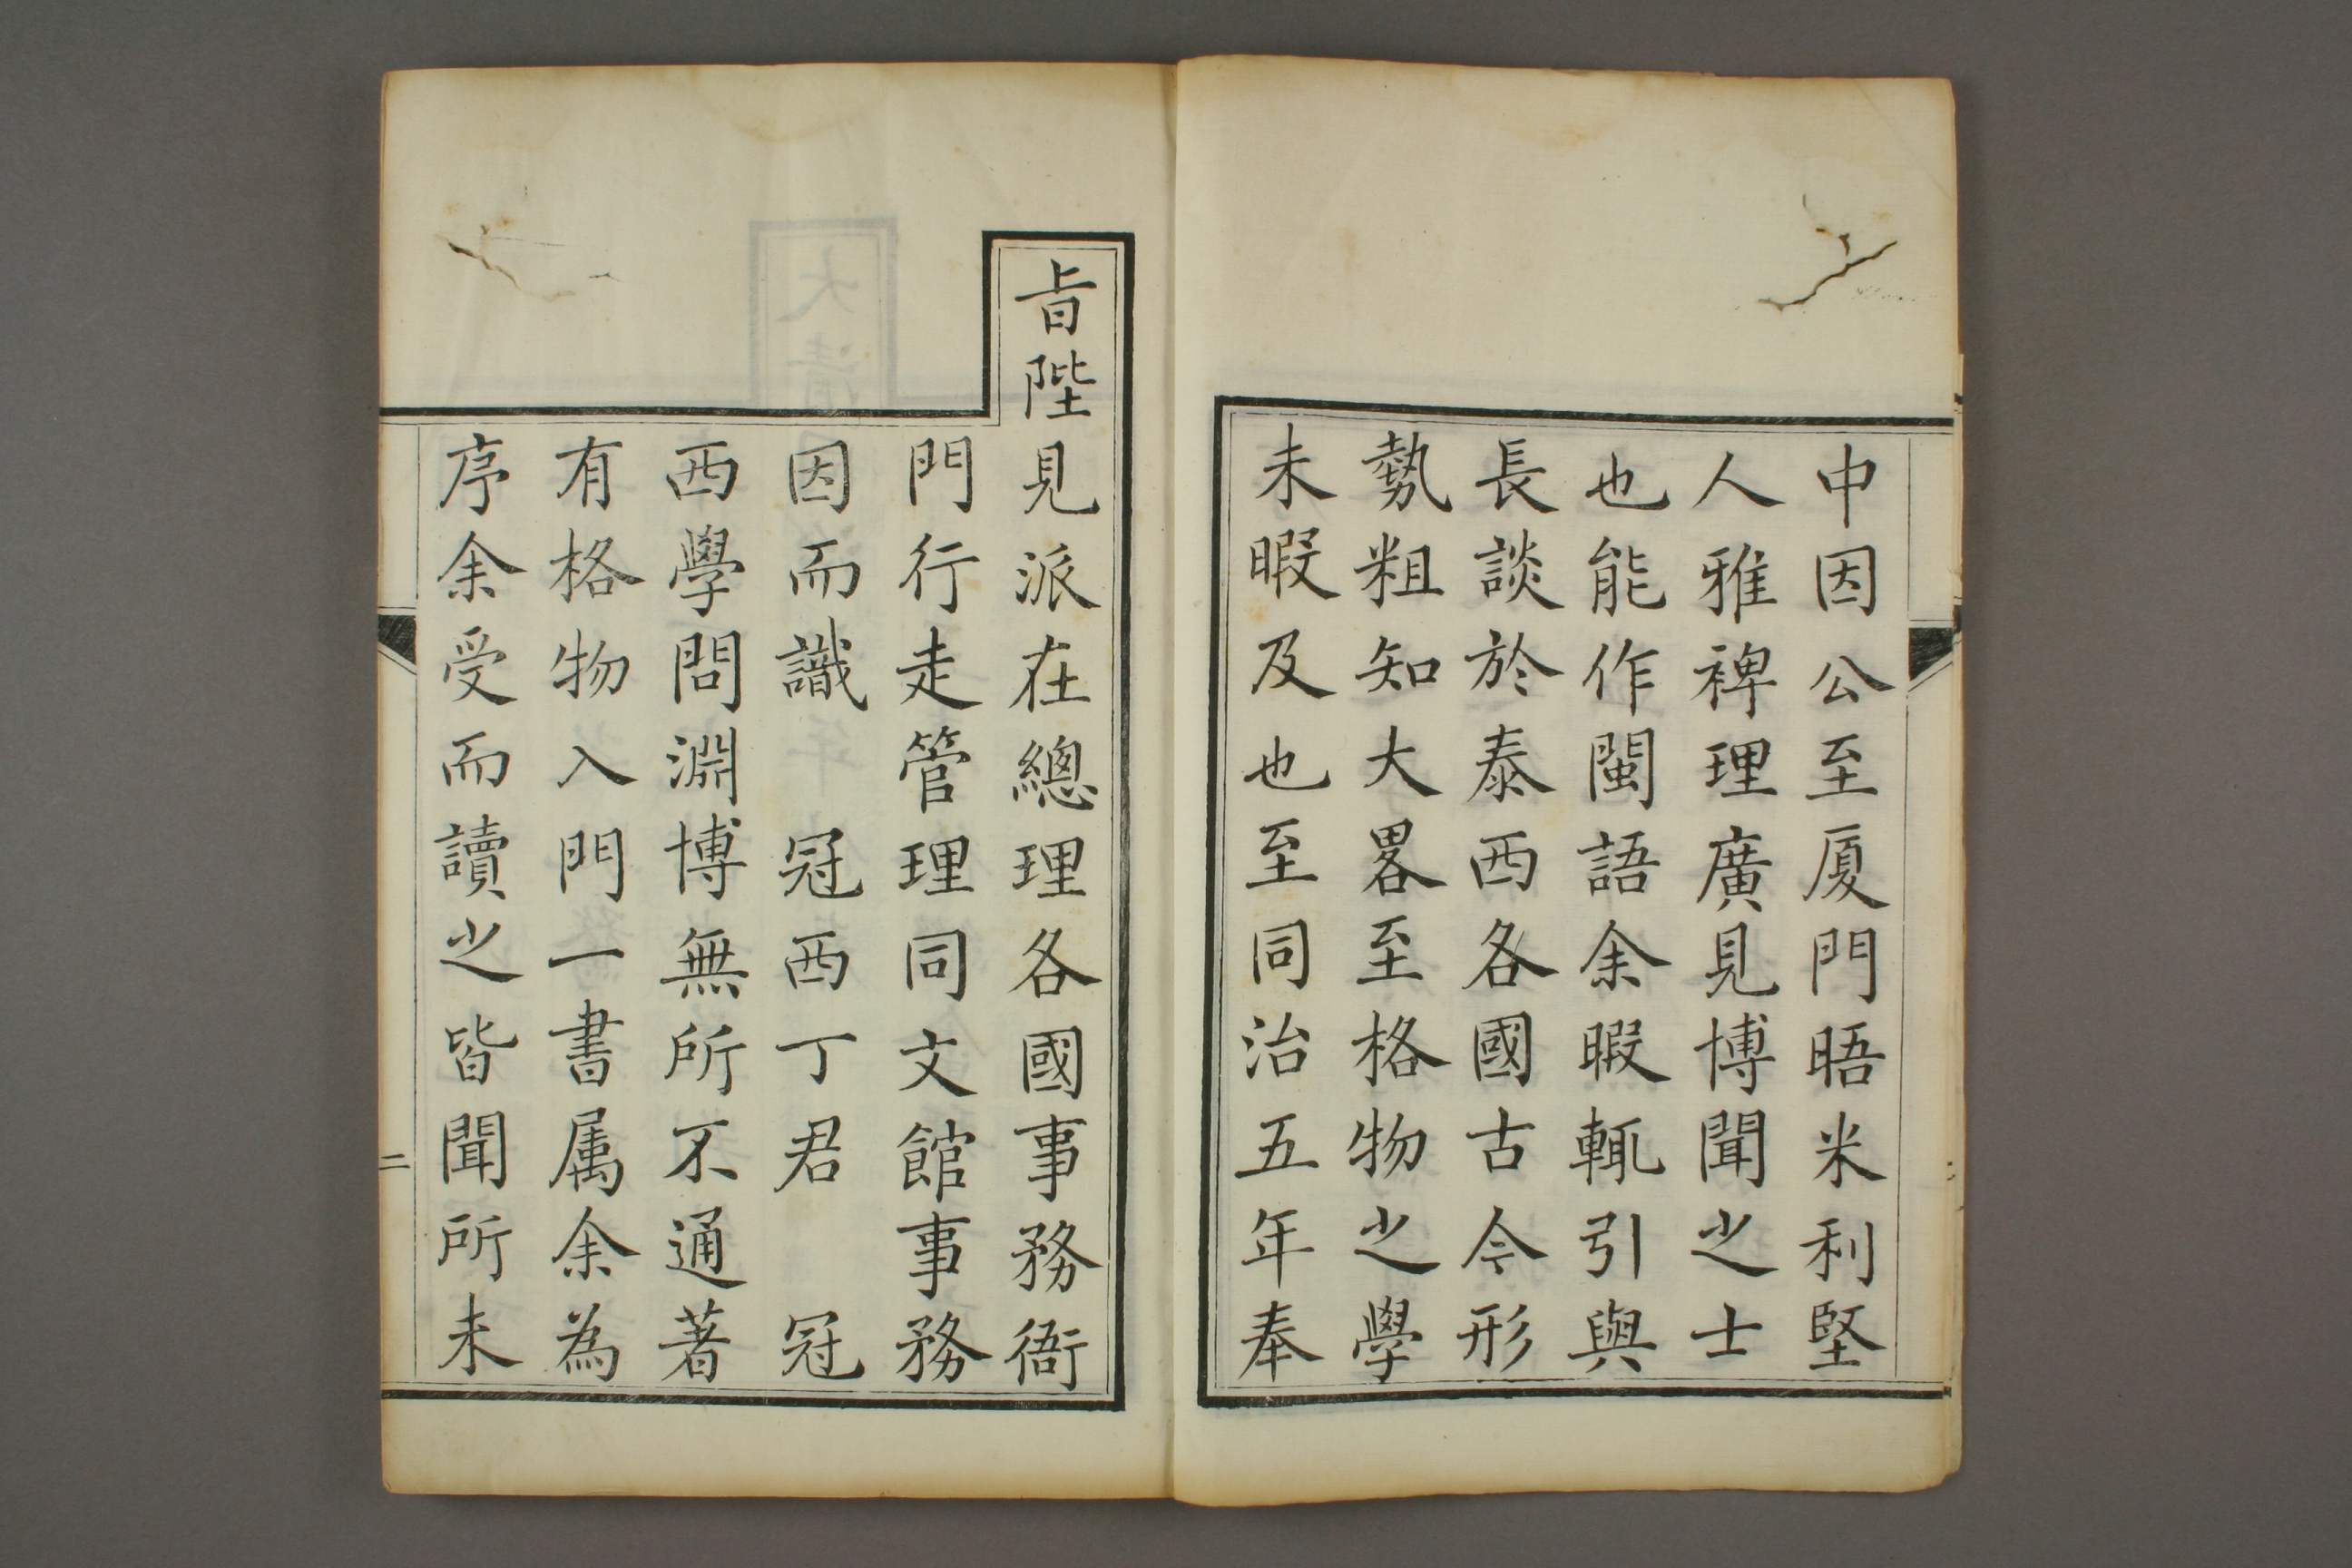 中因公至厦門晤米利堅
人雅裨理廣見博聞之士
也能作閩語余暇輒引與
長談於泰西各國古今形
勢粗知大畧至格物之學
未暇及也至同治五年奉
旨陛見派在總理各國事務衙
門行走管理同文館事務
因而識 冠西丁君 冠
西學問淵博無所不通著
有格物入門一書属余為
序余受而讀之皆聞所未
二